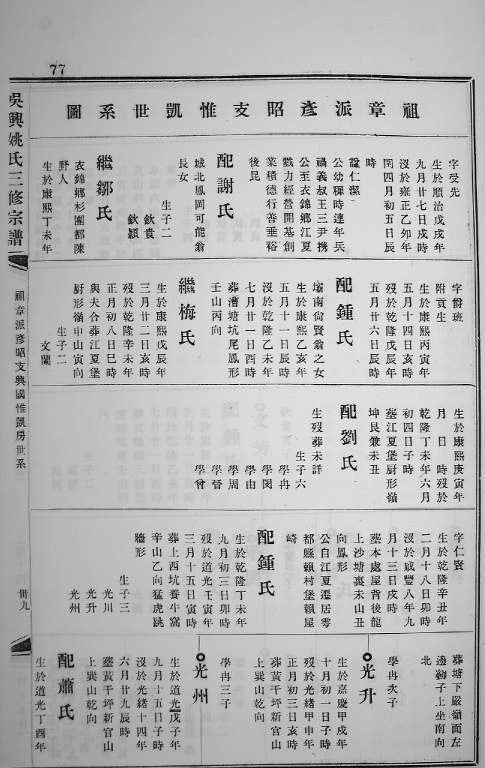 77
祖章派彥昭支惟凱世系圖
吳興姚氏三修宗譜
祖章派彥昭支興國惟凱房世系
卌九
字受先
生於順治戊戌年
九月廿七日戌時
沒於雍正乙卯年
閏四月初五日辰
時
諡仁潔
公幼穉時達年兵
禍義叔王三尹携
公至衣錦鄉江夏
戮力經營開基創
業積德行善垂裕
後昆
配謝氏
城北鳳岡可能翁
長女
生子二
欽貴
欽穎
繼鄒氏
衣錦鄉杉團都陳
野人
生於康熙丁未年
字爵班
附貢生
生於康熙丙寅年
五月十四日亥時
歿於乾隆戊辰年
五月廿六日辰時
配鍾氏
壩南尙賢翁之女
生於康熙乙亥年
五月十一日辰時
沒於乾隆乙未年
七月廿一日酉時
葬漕塘坑尾鳳形
壬山丙向
繼梅氏
生於康熙戊辰年
三月廿二日亥時
歿於乾隆辛未年
正月初八日巳時
與夫合葬江夏堡
厨形嶺申山寅向
生子二
文蘭
生於康熙庚寅年
月 日 時歿於
乾隆丁未年六月
初四日子時
葬江夏堡厨形嶺
坤艮兼未丑
配劉氏
生歿葬未詳
生子六
學冉
學閔
學由
學周
學晉
學曾
字仁賢
生於乾隆辛丑年
二月十八日卯時
沒於咸豐八年九
月十三日戌時
葬本處屋背後龍
上沙塘裏未山丑
向鳳形
公自江夏遷居零
都縣賴村堡賴屋
崎
配鍾氏
生於乾隆丁未年
九月初三日卯時
歿於道光壬寅年
三月十五日寅時
葬上西坑養牛窩
辛山乙向猛虎跳
牆形
生子三
光川
光升
光州
葬塘下嚴嶺面左
邊獅子上坐南向
北
學冉次子
光升
生於嘉慶甲戌年
十月初一日子時
歿於光緒甲申年
正月初三日亥時
葬黃干坪新官山
上巽山乾向
學冉三子
光州
生於道光戊子年
九月十五日子時
沒於光緒十四年
六月廿九辰時
葬黃干坪新官山
上巽山乾向
配蕭氏
生於道光丁酉年